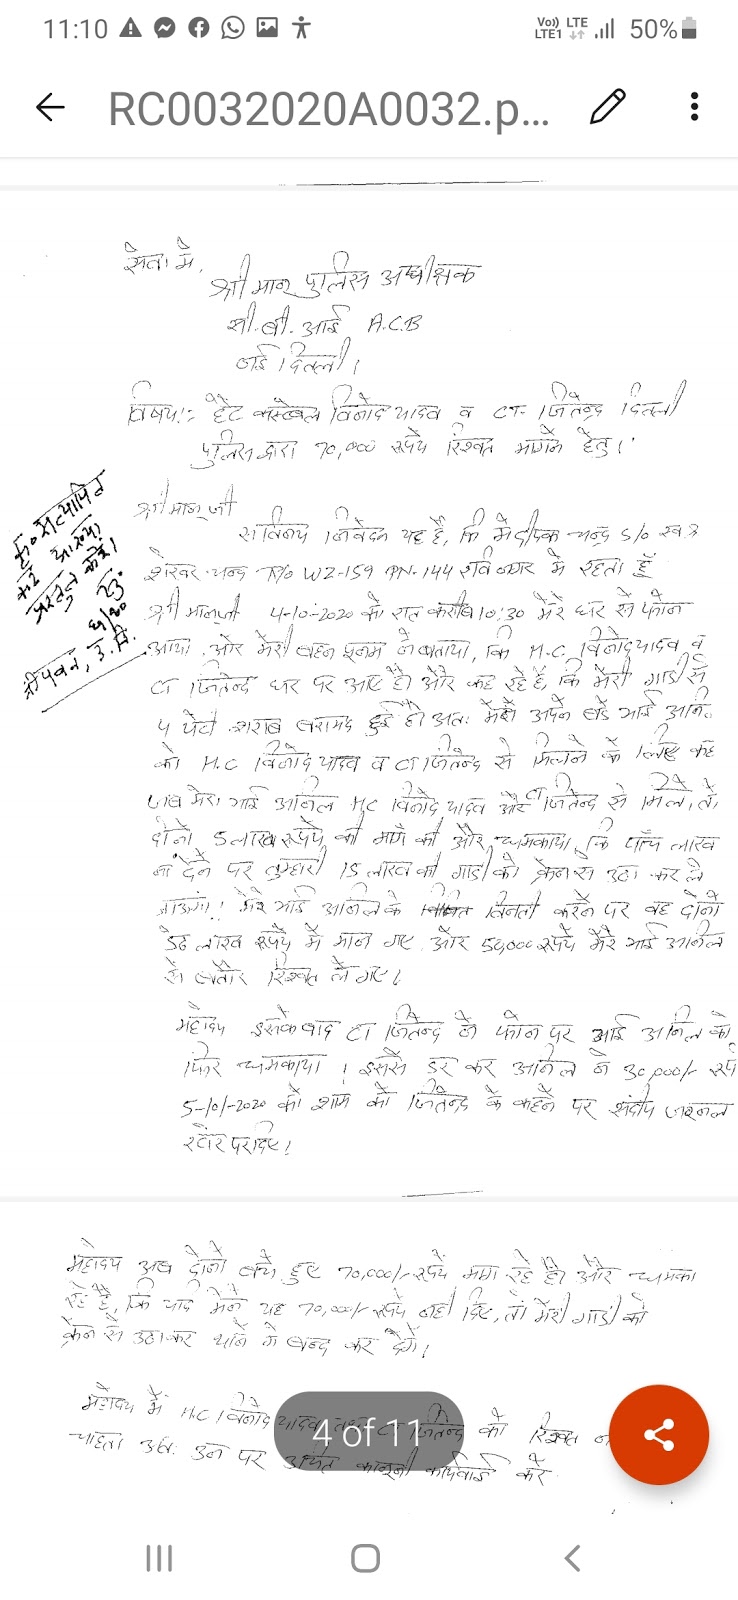 11:10
Vo)) LTE
LTE1
50%
RC0032020A0032.p...
सेवा में,
श्रीमान् पुलिस अधीक्षक
सी.बी.आई A.C.B
नई दिल्ली।
विषय:- हैड कांस्टेबल विनोद यादव व CT- जितेन्द्र दिल्ली
पुलिस द्वारा 70,000 रूपये रिश्वत मांगने हेतु।
श्रीमान् जी
सविनय निवेदन यह है, कि मैं दीपक चन्द्र S/o स्व॰
शेखर चन्द R/o WZ-159 रवि नगर में रहता हूँ
श्रीमानजी 4-10-2020 को रात करीब 10:30 मेरे घर से फोन
आया, और मेरी बहन पूनम ने बताया, कि H.C विनोद यादव व
CT जितेन्द्र घर पर आए है। और कह रहे है, कि मेरी गाडी से
4 पेटी शराब बरामद हुई है। अतः मैंने अपने बडे भाई अनिल
को H.C विनोद यादव व CT जितेन्द्र से मिलने के लिए कहा
जब मेरा भाई अनिल HC विनोद यादव और CT जितेन्द्र से मिले, तो
दोनो 5 लाख रूपये की मांग की और धमकाया, कि पाँच लाख
ना देने पर तुम्हारी 15 लाख की गाडी को क्रेन से उठा कर ले
जाऊंगा। मेरे भाई अनिल के विनती करने पर वह दोनो
डेढ लाख रूपये में मान गए और 50,000 रूपये मेरे भाई अनिल
से बतौर रिश्वत ले गए।
महोदय इसके बाद CT जितेन्द्र ने फोन पर भाई अनिल को
फिर धमकाया। इससे डर कर अनिल ने 30,000/- रूपये
5-10-2020 को शाम को जितेन्द्र के कहने पर संदीप जनरल
स्टोर पर दिए।
महोदय अब दोनो बचे हुए 70,000/- रूपये मांग रहे है। और धमका
रहे है, कि यदि मैंने यह 70,000/- रूपये नही दिए, तो मेरी गाडी को
क्रेन से उठाकर थाने में बन्द कर देंगे।
महोदय मैं H.C विनोद यादव CT जितेन्द्र को रिश्वत
चाहता अतः उन पर उचित कानूनी कार्यवाई करें
कृ॰ सत्यापित
करें आख्या
प्रस्तुत करें।
श्री पवन, उ. नि.
4 of 11